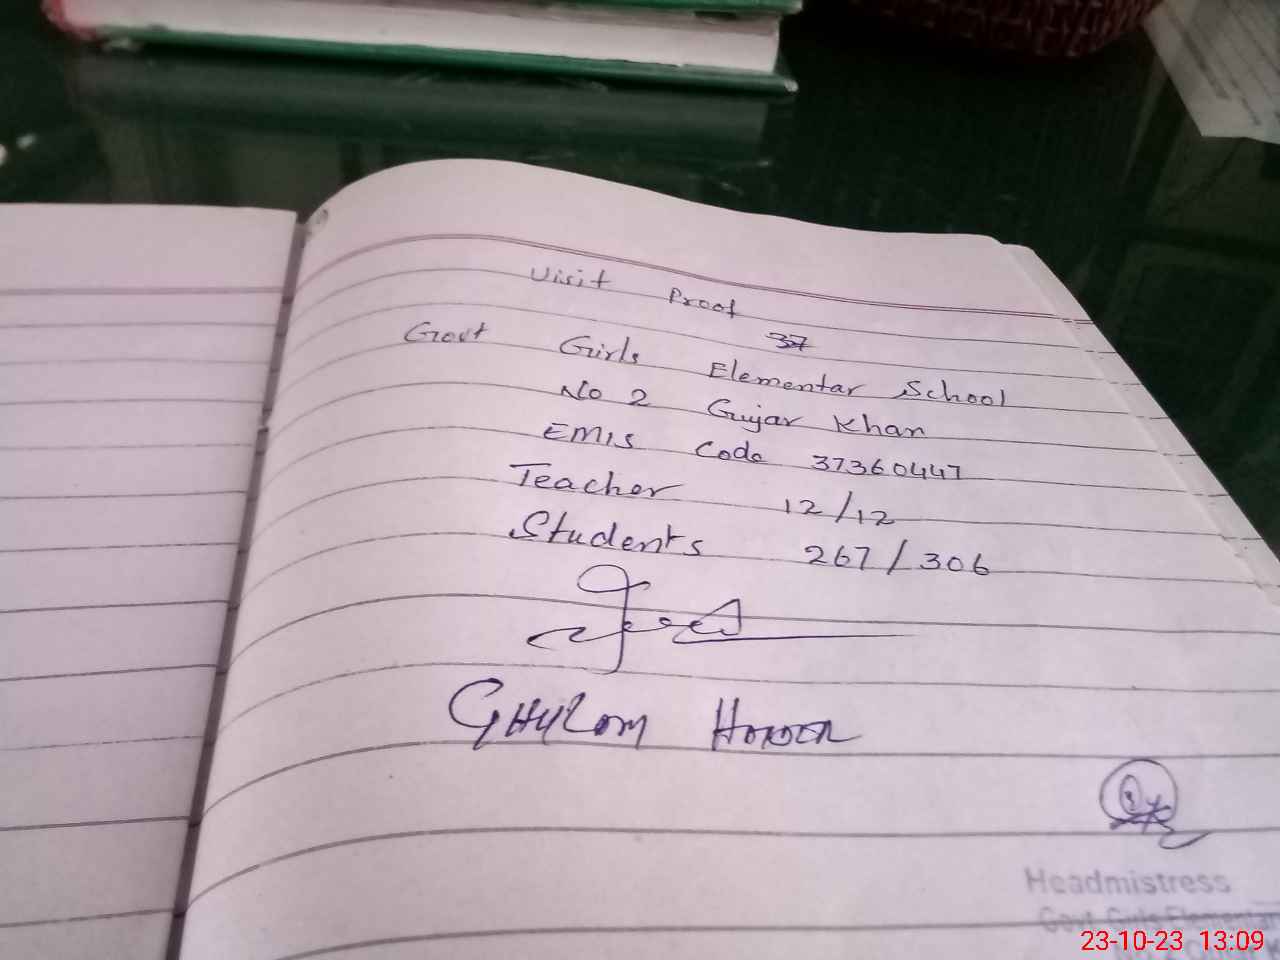 Visit Proof
37
Govt Girls Elementar School
No 2 Gujar Khan
EMIS Code 37360447
Teacher 12/12
Students 267/306
Headmistress
Govt Girls Elementar
23-10-23 13:09